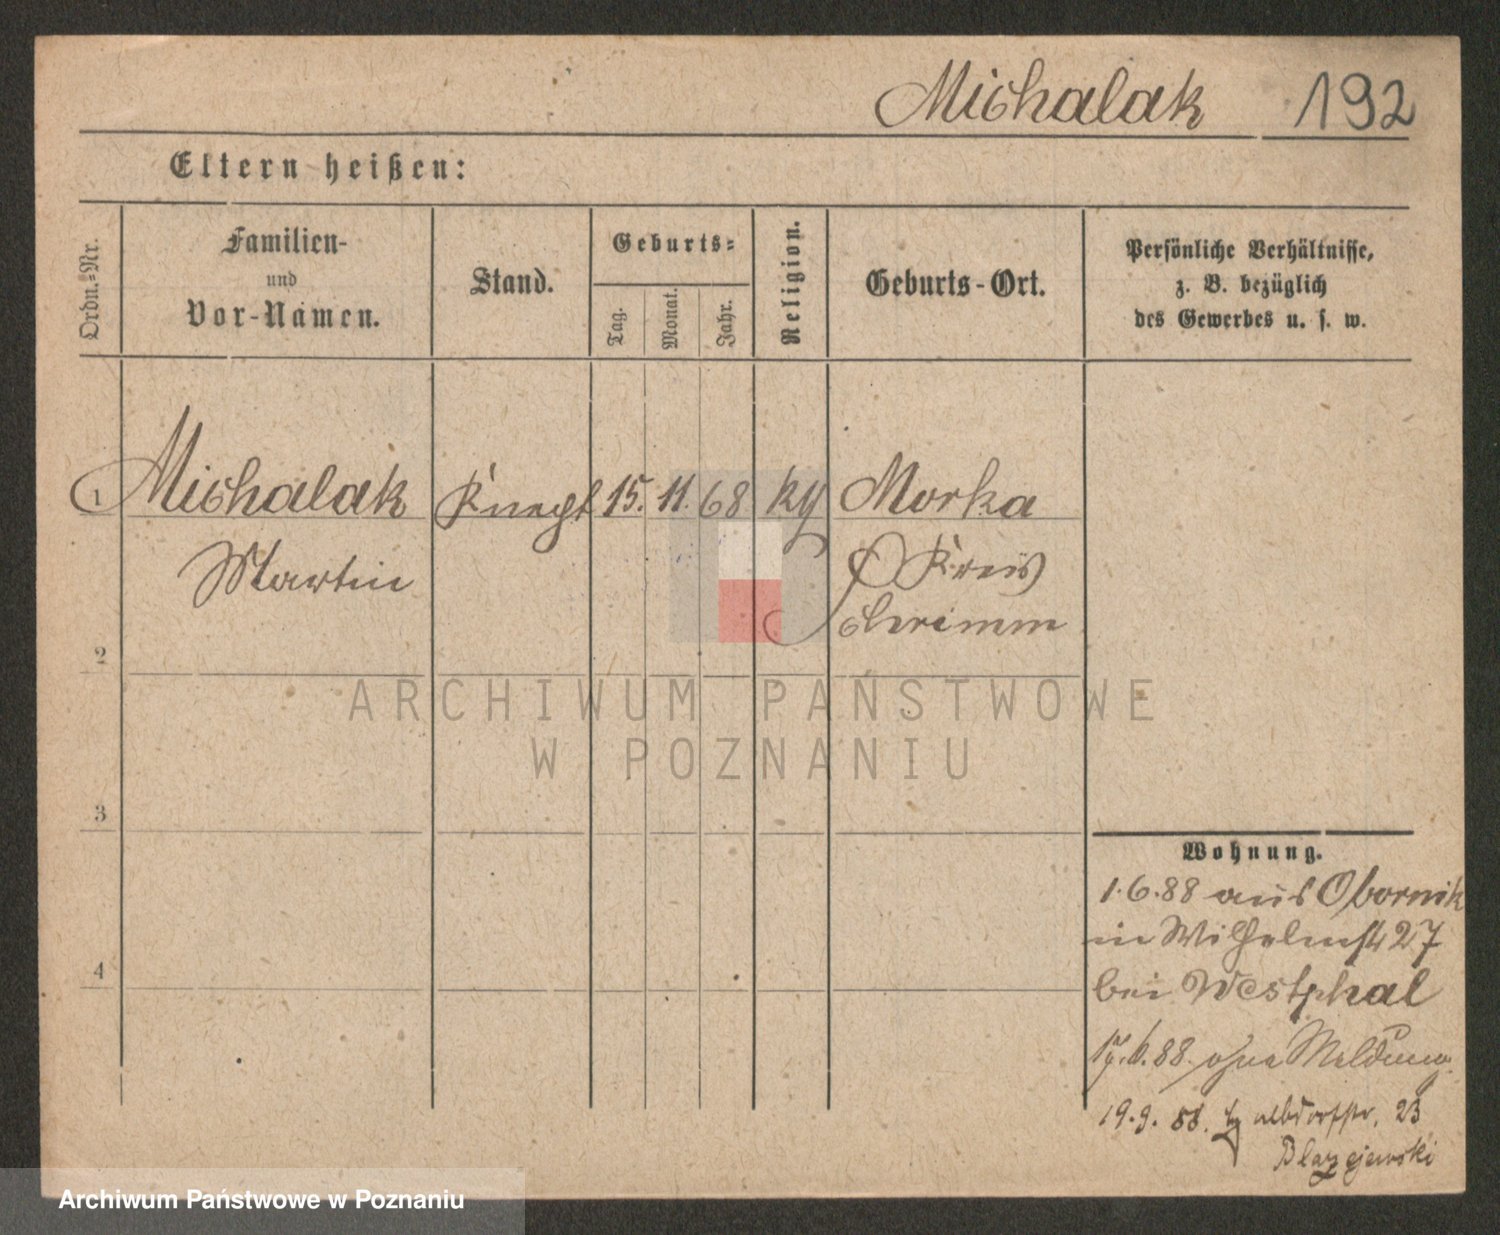 Michalak 192
Eltern heißen:
Ordn.=Nr.
Familien-
und
Vor-Namen.
Stand.
Geburts=
Tag.
Monat.
Jahr.
Religion.
Geburts-Ort.
Persönliche Verhältnisse,
z. B. bezüglich
des Gewerbes u. s. w.
1 Michalak Knecht 15. 11. 68 Morka
Martin Kreis
Schrimm
2
3
4
Wohnung.
1.6.88 aus Obornik
in Wilhelmstr 27
bei Westphal
17.6.88. ohne Meldung
19.9.88. Halbdorfstr. 23
Blazejewski
ARCHIWUM PAŃSTWOWE
W POZNANIU
Archiwum Państwowe w Poznaniu